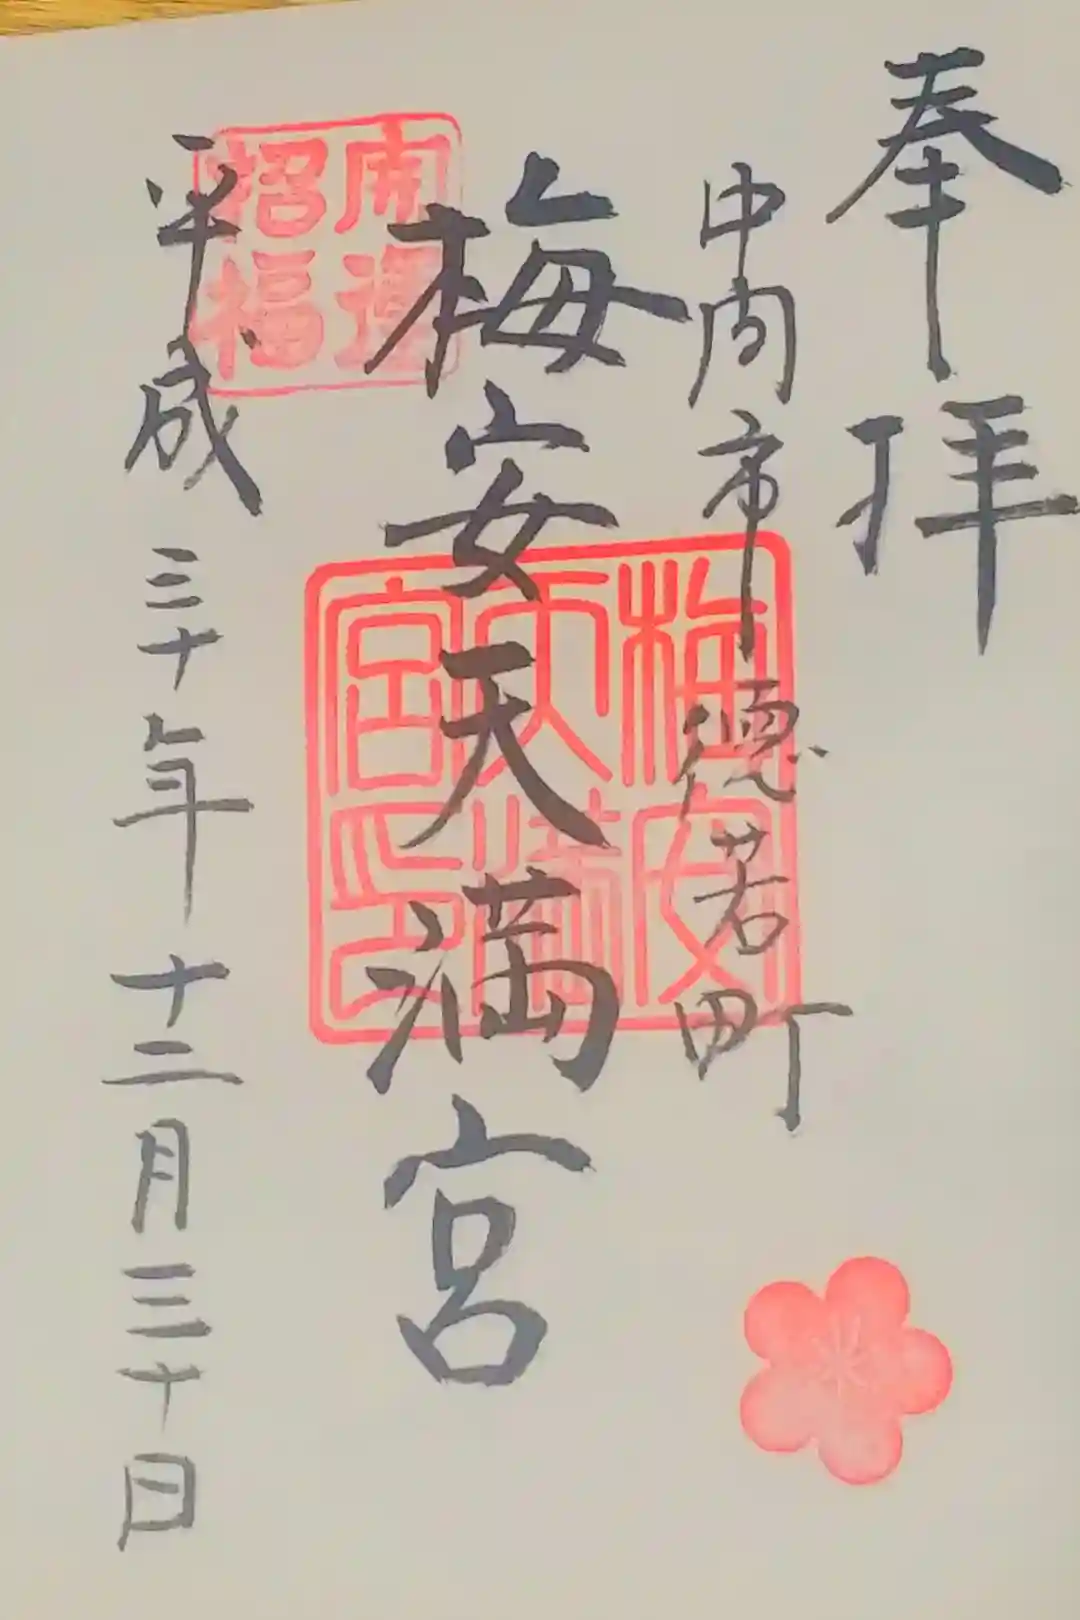 奉拝
中间市徳若町
梅安天満宮
平成三十年十二月三十日
開運招福
梅安天満宮印